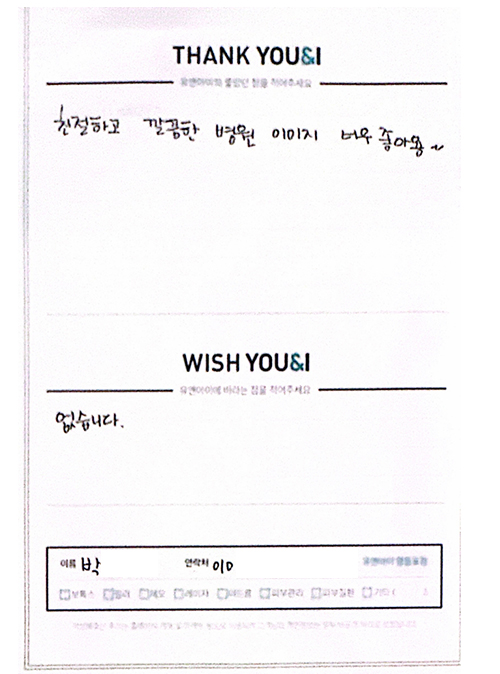 THANK YOU&I
유앤아이의 좋았던 점을 적어주세요
친절하고 깔끔한 병원 이미지 너무 좋아용~
WISH YOU&I
유앤아이에 바라는 점을 적어주세요
없습니다.
이름 박 연락처 010 유앤아이
보톡스 필러 제모 레이저 여드름 피부관리 피부질환 기타 (